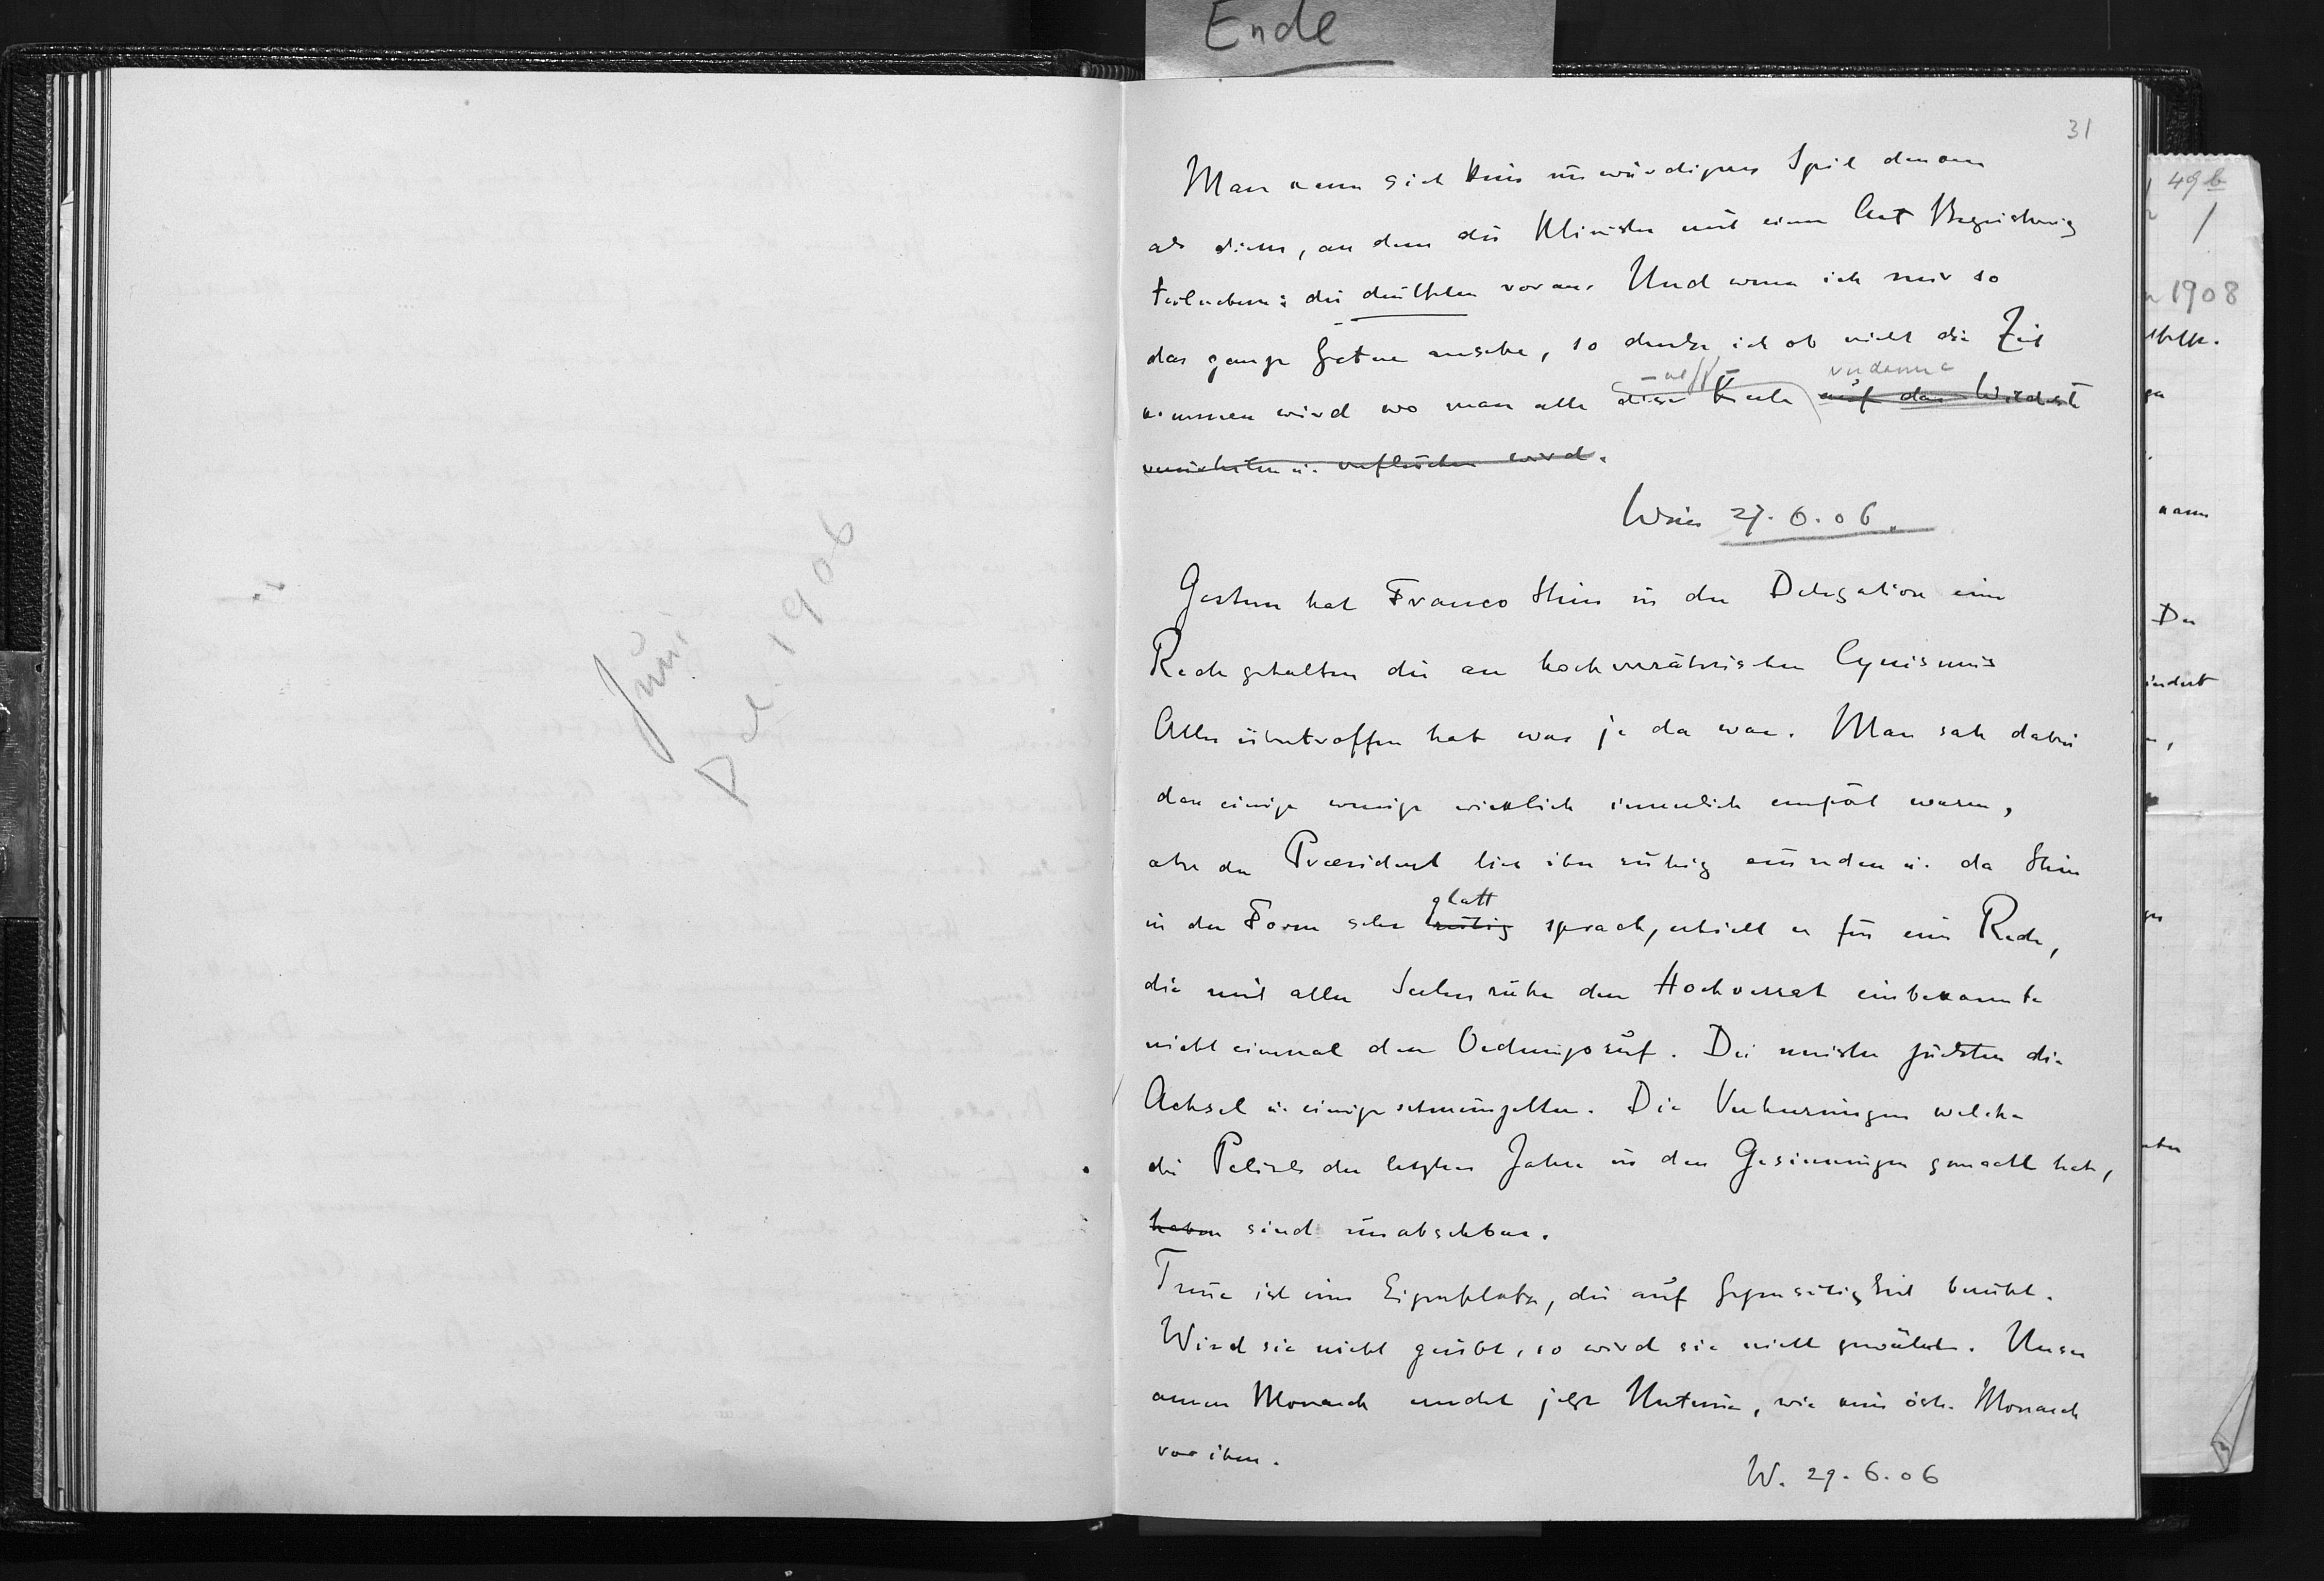 Ende
Juni
Del. 1906
31
Man kann sich kein unwürdigeres Spiel denken
als dieses, an dem die Minister mit einer Art Begeisterung
teilnehmen: die deutschen voran. Und wenn ich mir so
das ganze Getue ansehe, so denke ich ob nicht die Zeit
kommen wird wo man alle diese auf das
vernichten u. verfluchen wird.
Wien 27.6.06.
Gestern hat Franco Stein in der Delegation eine
Rede gehalten die an hochverräterischen Cynismus
Alles übertroffen hat was je da war. Man sah dabei
dass einige wenige wirklich innerlich empört waren,
aber der Præsident liess ihn ruhig ausreden u. da Stein
in der Form sehr ruhig glatt sprach, erhielt er für eine Rede,
die mit aller Seelenruhe den Hochverrat einbekannte
nicht einmal den Ordnungsruf. Die meisten zuckten die
Achsel u. einige schmunzelten. Die Verheerungen welche
die Politik der letzten Jahre in den Gesinnungen gemacht hat,
haben sind unabsehbar.
Treue ist eine Eigenschaft, die auf Gegenseitigkeit beruht.
Wird sie nicht geübt, so wird sie nicht gewährt. Unser
armer Monarch erndet jetzt Untreue, wie kein östr. Monarch
vor ihm.
W. 29.6.06
49b
1
1908
kann
Der
indert